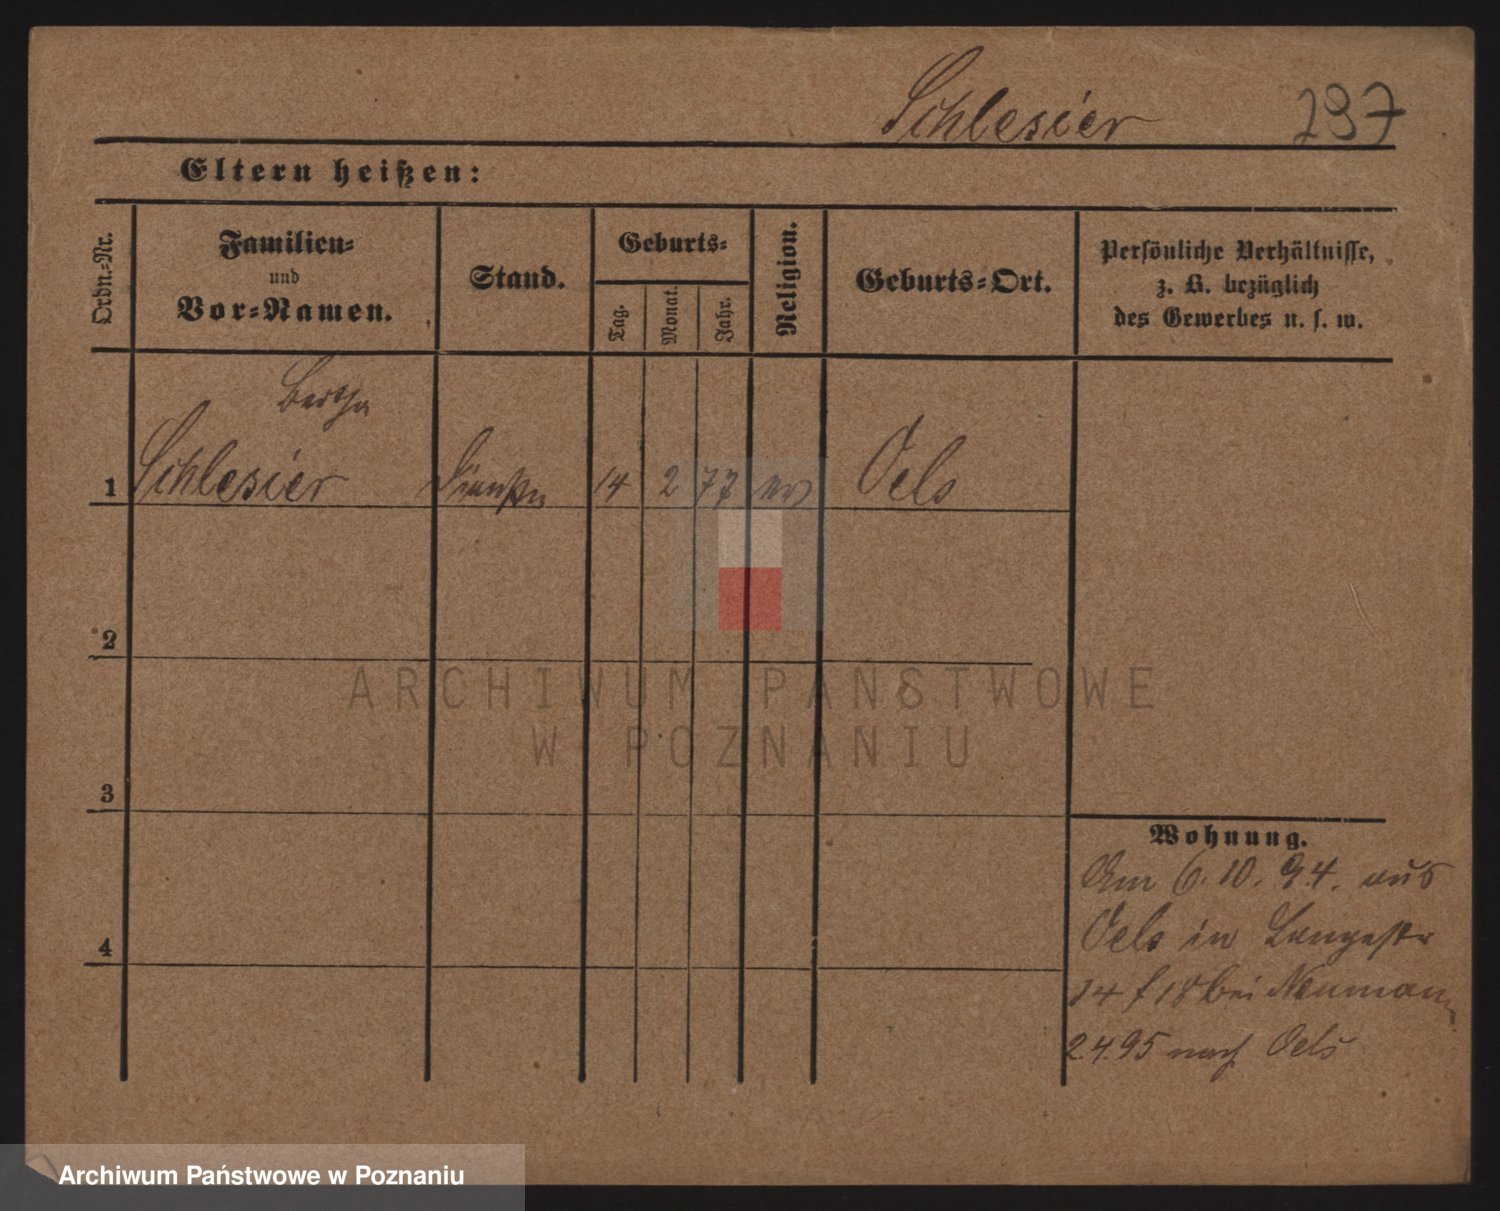 Schlesier 237
Eltern heißen:
Ordn.-Nr.
Familien-
und
Vor-Namen.
Stand.
Geburts-
Tag.
Monat.
Jahr.
Religion.
Geburts-Ort.
Persönliche Verhältnisse,
z. B. bezüglich
des Gewerbes u. s. w.
Bertha
1 Schlesier 14 2 77 ev Oels
2
3
4
Wohnung.
Am 6.10.94. aus
Oels in Langestr
14 bei Neumann
2.4.95 nach Oels
ARCHIWUM PAŃSTWOWE
W POZNANIU
Archiwum Państwowe w Poznaniu